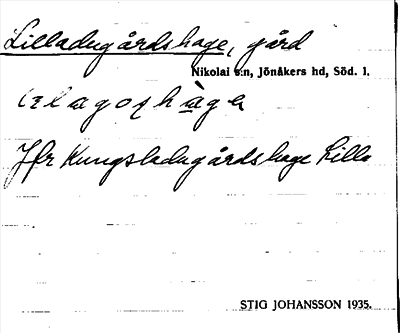 Lilladugårdshage, gård
Nikolai s:n, Jönåkers hd, Söd. l.
Jfr Kungsladugårdshage Lilla
STIG JOHANSSON 1935.